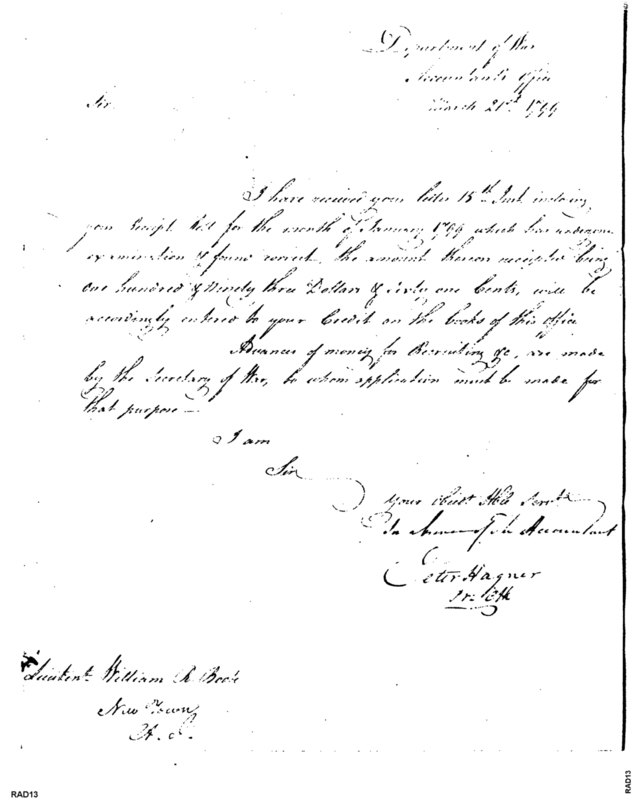 Department of War
Accountants Office
March 21st 1799
Sir
I have received your letter 15th Inst. inclosing
your receipt Roll for the month of January 1799 which has undergone
examination & found correct. the amount thereon receipted being
one hundred & Ninety three Dollars & Sixty one Cents, will be
accordingly entered to your Credit on the books of this office
Advances of money for Recruiting &c. are made
by the Secretary of War, to whom application must be made for
that purpose—
I am
Sir
your Obedt. Hble Servt.
Accountant
Peter Hagner
Pr. Clk
Lieutent. William R. Boote
New Town
RAD13
RAD13